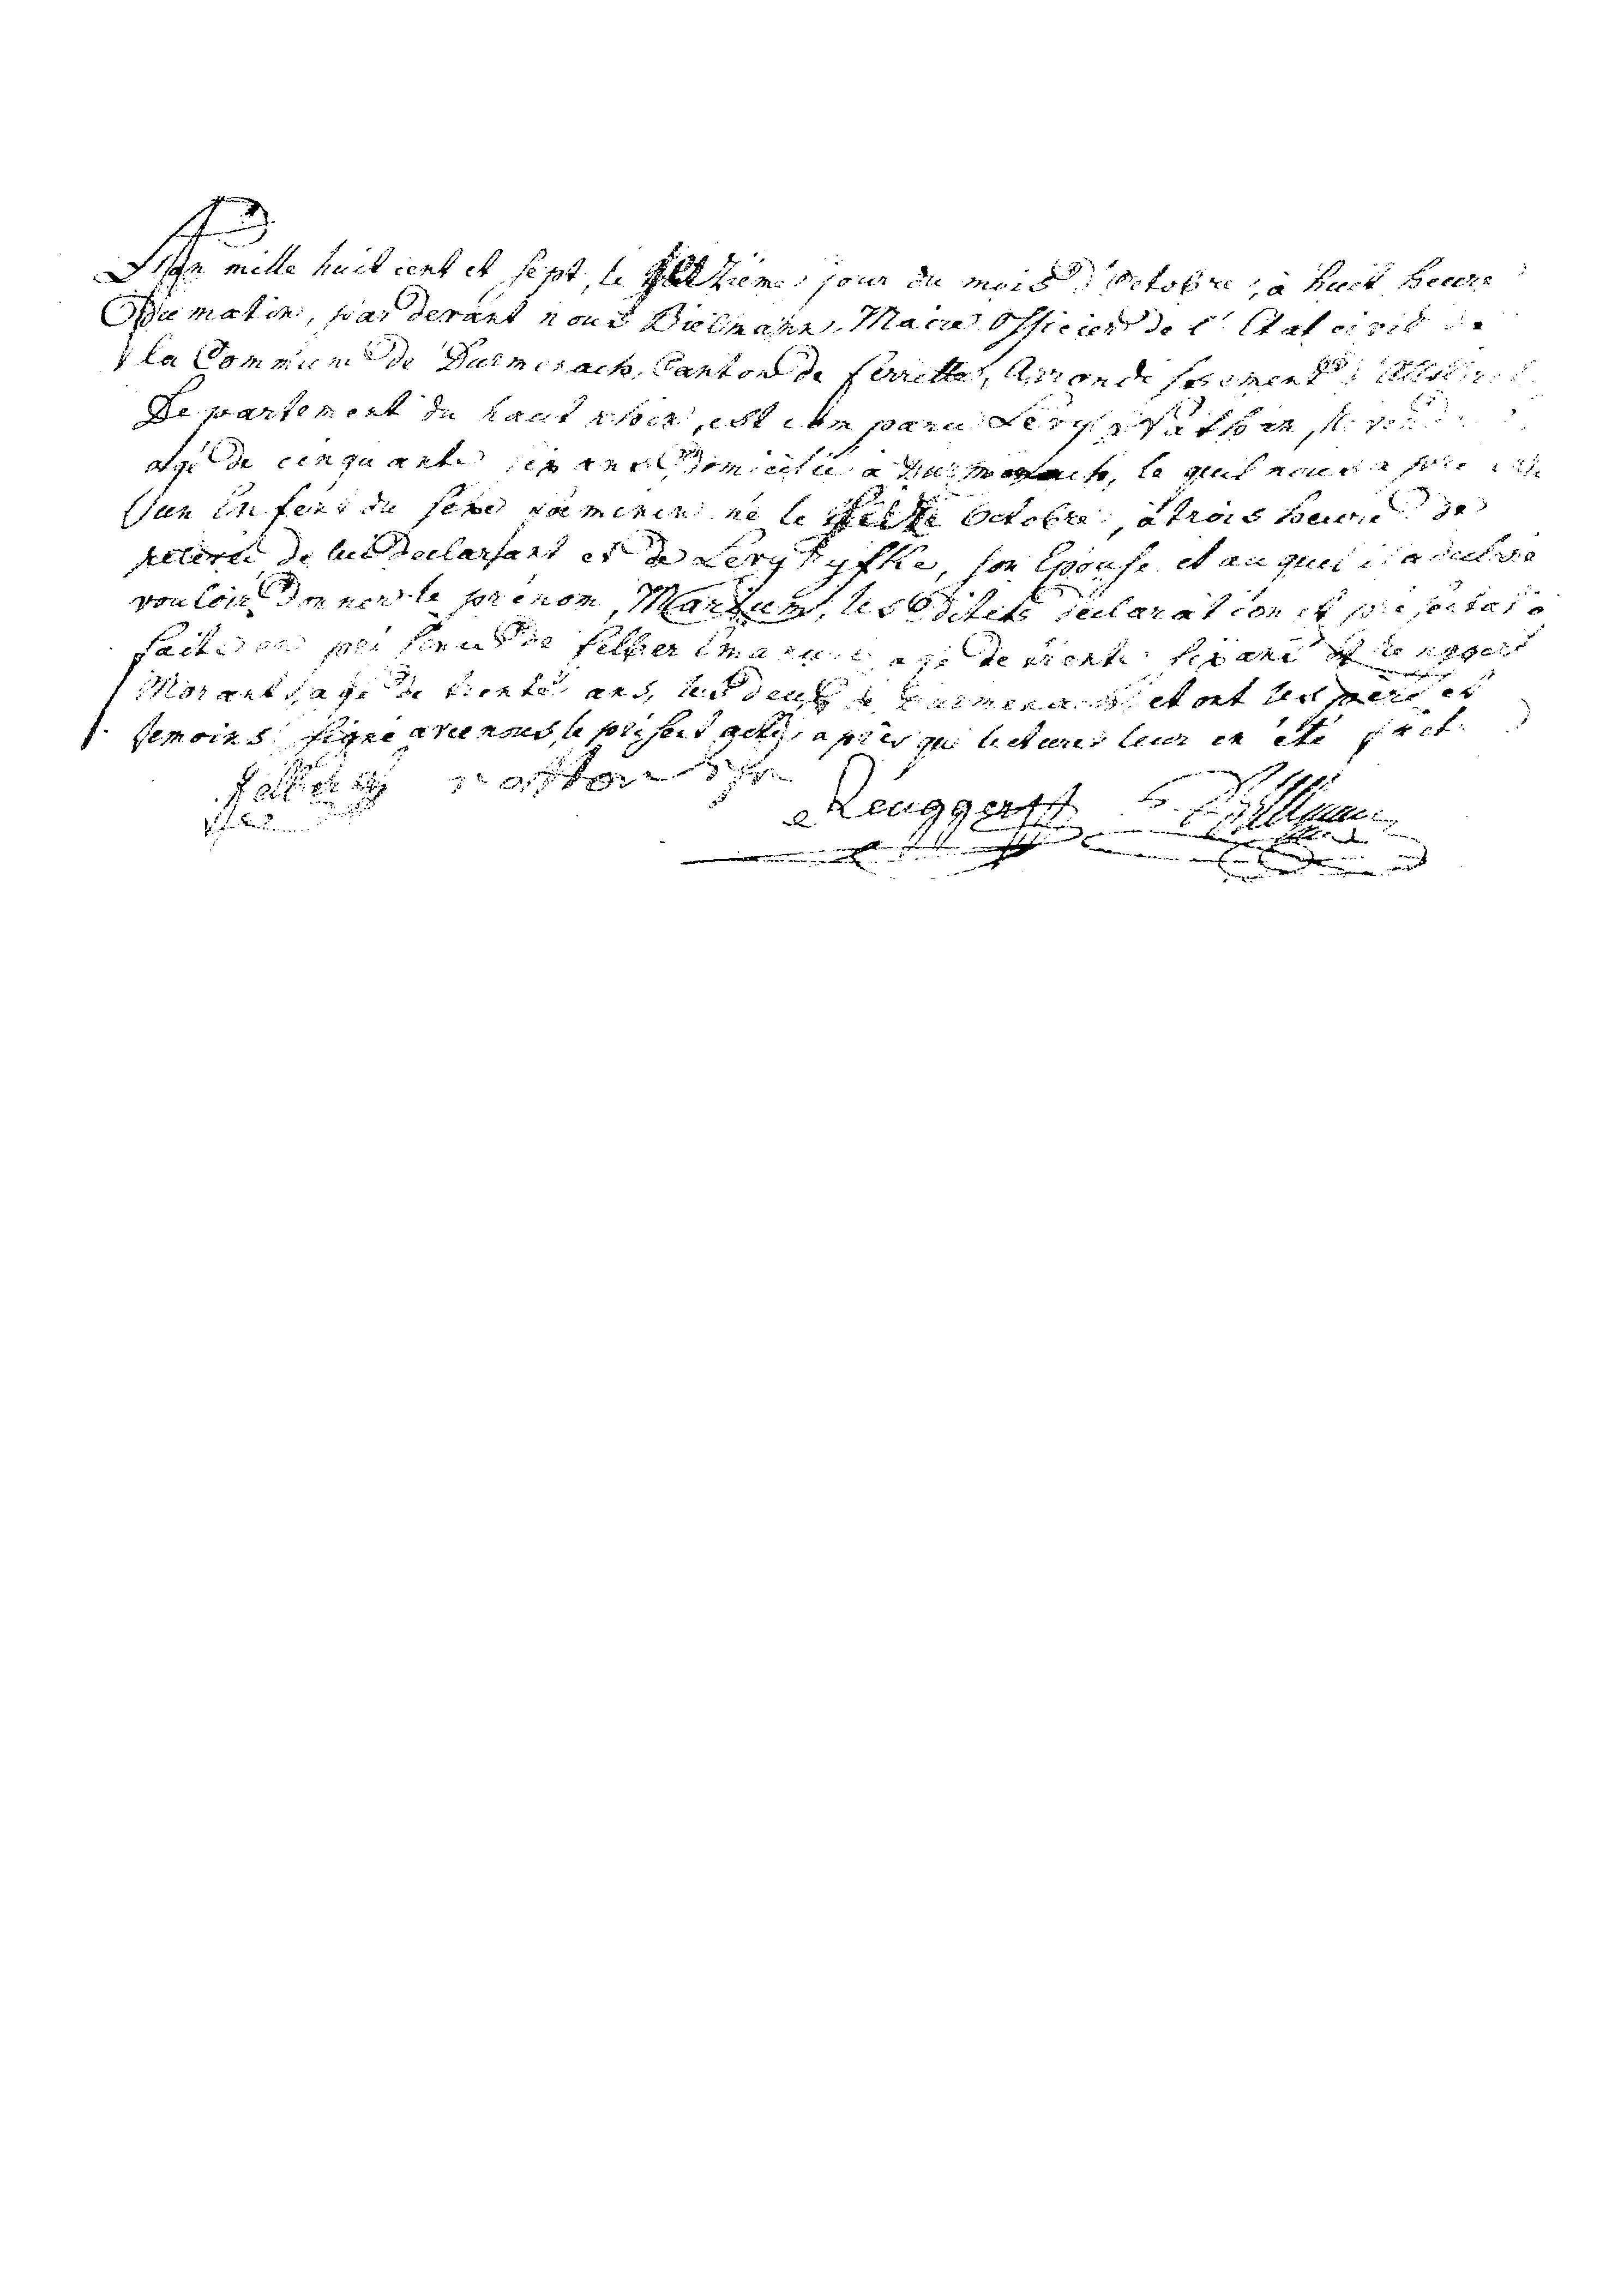 L'an mille huit cent et sept, le jour du mois d'Octobre, à huit heure
Du matin, par devant nous Bielmann, Maire Officier de l'Etat civil de
la Commune de Durmenach, Canton de ferrette, Arrondissement
Departement du haut rhin, est comparu Levy Nathan,
agé de cinquante six ans Domicilié à Durmenach, le quel nous a
un Enfent du sexe féminin né le Octobre, à trois heure de
relevée de lui declarant et de Levy, son Epouse et au quel il a declaré
vouloir Donner le prénom, Marium, les Dites déclaration et présentatio
faite en présence de felber Emanuel agé de trente six ans et Renggers
Morant, agé de trente ans, les deux de Durmenach et ont les père et
temoins signé avec nous, le présent acte, après que lecture leur en été fait
felber
Renggerst Bielmann